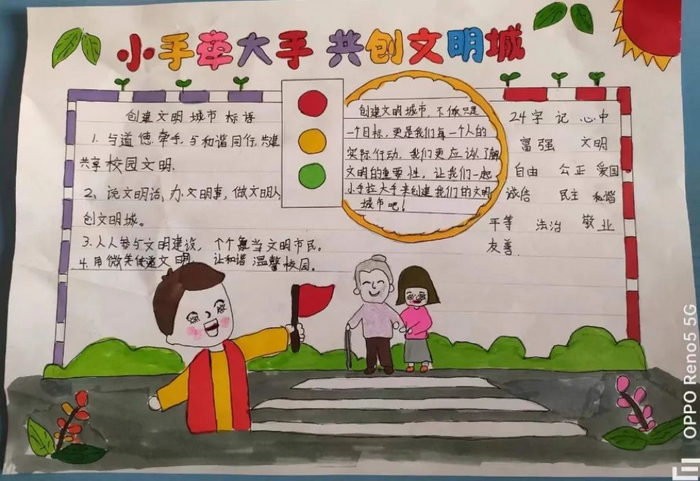 小手牵大手 共创文明城
创建文明 城市 标语
1. 与道德牵手，与和谐同行，共建
共享校园文明.
2、说文明话，办文明事，做文明人
创文明城。
3. 人人参与文明建设，个个争当文明市民。
4. 用微笑传递文明 让和谐温馨校园。
创建文明城市，不仅只是
一个目标，更是我们每一个人的
实际行动，我们更应该了解
文明的重要性，让我们一起
小手拉大手来创建我们的文明
城市吧！
24字 记 心中
富强 文明
自由 公正 爱国
诚信 民主 和谐
平等 法治 敬业
友善.
OPPO Reno5 5G